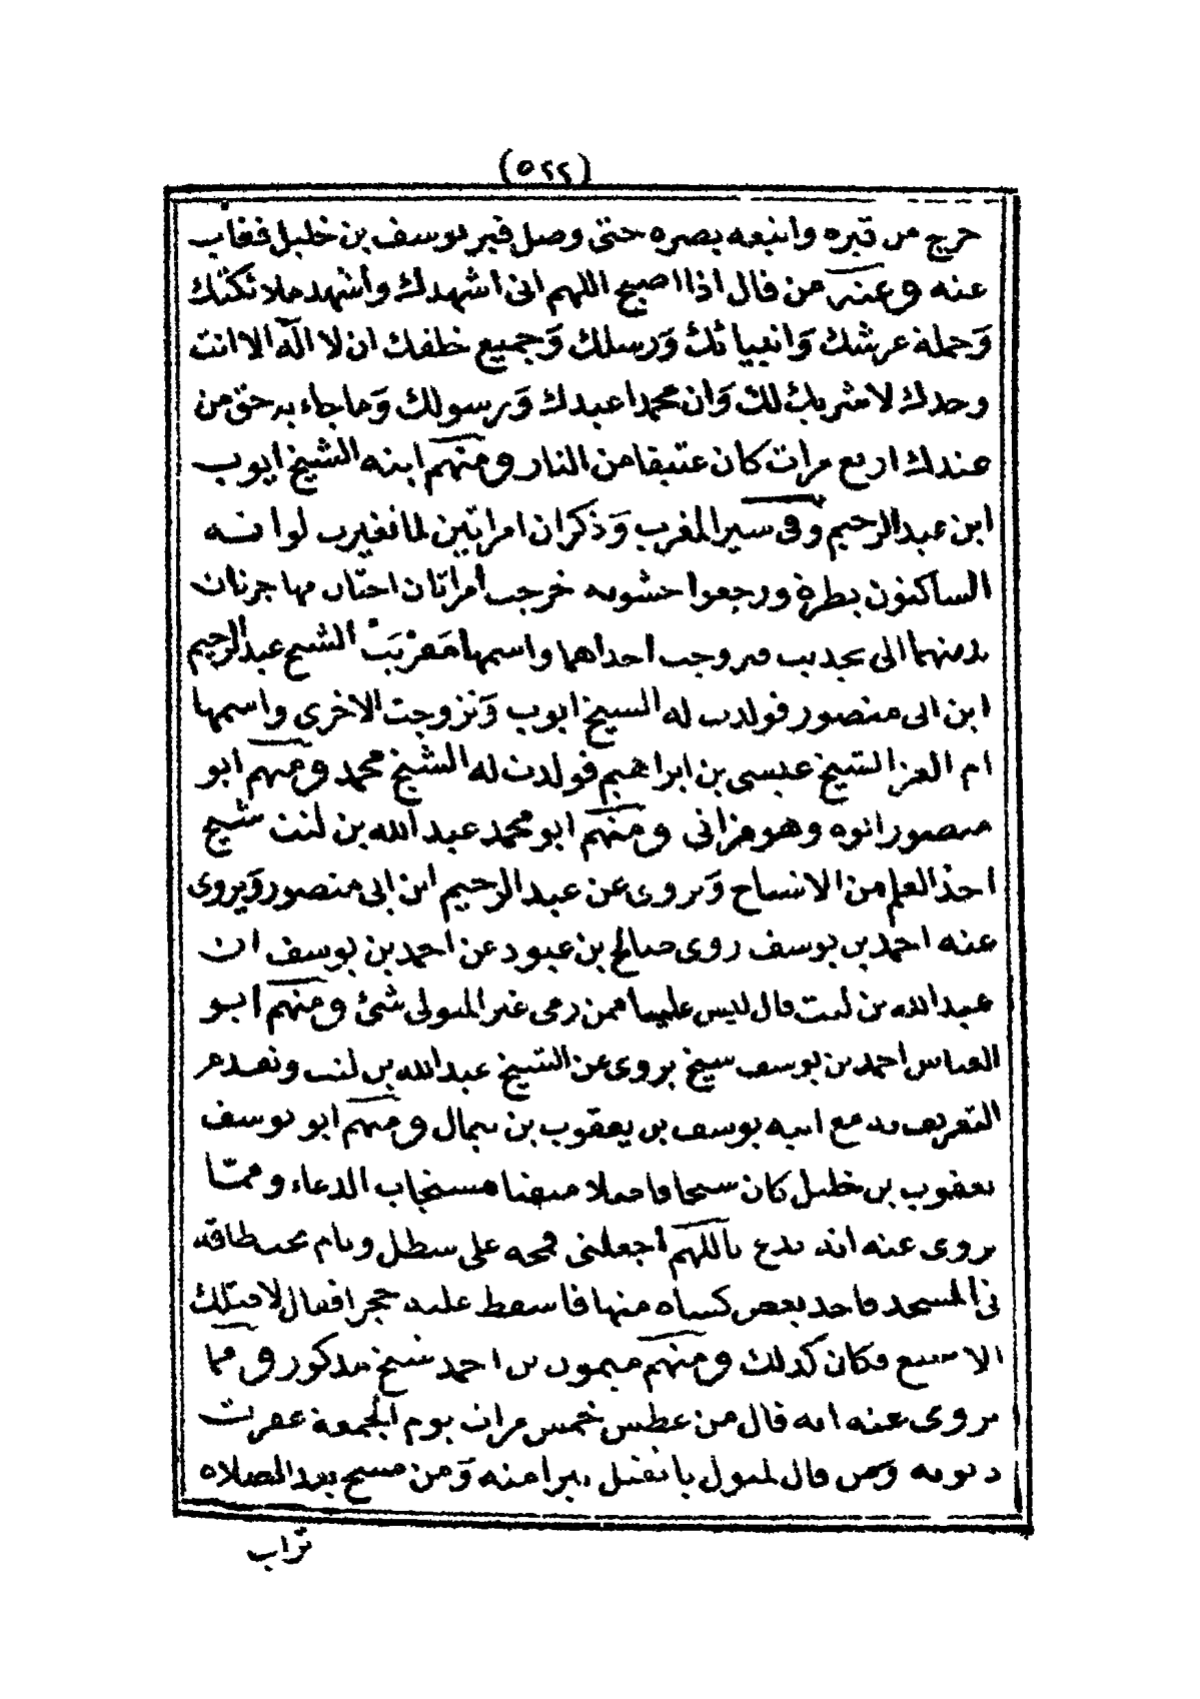 (٥٢٢)
خرج من قبره واتبعه بصره حتى وصل قبر يوسف بن خليل فغاب
عنه وعنه من قال اذا اصبح اللهم انى اشهدك وأشهد ملائكتك
وَحملة عرشك وَانبيائك وَرسلك وَجميع خلقك ان لا اله الا انت
وحدك لا شريك لك وَان محمدا عبدك وَرسولك وَما جاء به حق من
عندك اربع مرات كان عتيقا من النار ومنهم ابنه الشيخ ايوب
ابن عبد الرحيم وفى سير المغرب وَذكر ان امراتين لما نغيرت لواته
الساكنون بطرة ورجعوا حشويه خرجت امراتان اختان منها جرتان
بدينهما الى يجديب فتزوجت احداهما واسمها مَقرْبَتْ الشيخ عبد الرحيم
ابن ابى منصور فولدت له الشيخ ايوب وَتزوجت الاخرى واسمها
ام العز الشيخ عيسى بن ابراهيم فولدت له الشيخ محمد ومنهم ابو
منصور ابوه وهو مزاتى ومنهم ابو محمد عبد الله بن لنت شيخ
اخذ العلم من الاشياح وَيروى عن عبد الرحيم ابن ابى منصور وَيروى
عنه احمد بن يوسف روى صالح بن عبود عن احمد بن يوسف ان
عبد الله بن لنت قال ليس علينا ممن رمى غير المتولى شئ ومنهم ابو
العباس احمد بن يوسف شيخ يروى عن الشيخ عبد الله بن لنت وتقدم
التعريف به مع ابيه يوسف بن يعقوب بن تيمال ومنهم ابو يوسف
يعقوب بن خليل كان شيخا فاضلا متقنا مستجاب الدعاء وممّا
يروى عنه انه بدع باللهم اجعلنى قمحه على سطل ونام تحت طاقة
فى المسجد فاخذ بعض كساه منها فاسقط عليه حجرا فقال لا قتلك
الا سبع فكان كذلك ومنهم ميمون بن احمد شيخ مذكور ومما
يروى عنه انه قال من عطس خمس مرات يوم الجمعة غفرت
ذنوبه وَمن قال لمتول يا نفيل يبرا منه وَمن مسح بيد الصلاه
تراب